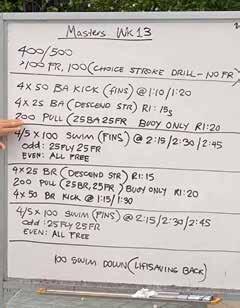 Masters Wk 13
400/500
>100 FR, 100 (CHOICE STROKE DRILL - NO FR)
4 x 50 BA KICK (FINS) @ 1:10/1:20
4 x 25 BA (DESCEND STR) RI: 15s
200 PULL (25BA 25FR) BUOY ONLY RI:20
4/5 x 100 SWIM (FINS) @ 2:15/2:30/2:45
odd: 25FLY 25FR
EVEN: ALL FREE
4 x 25 BR (DESCEND STR) RI:15
200 PULL (25BR, 25FR) BUOY ONLY RI:20
4 x 50 BR KICK @ 1:15/1:30
4/5 x 100 SWIM (FINS) @ 2:15/2:30/2:45
odd: 25FLY 25FR
EVEN: ALL FREE
100 SWIM DOWN (LIFESAVING BACK)